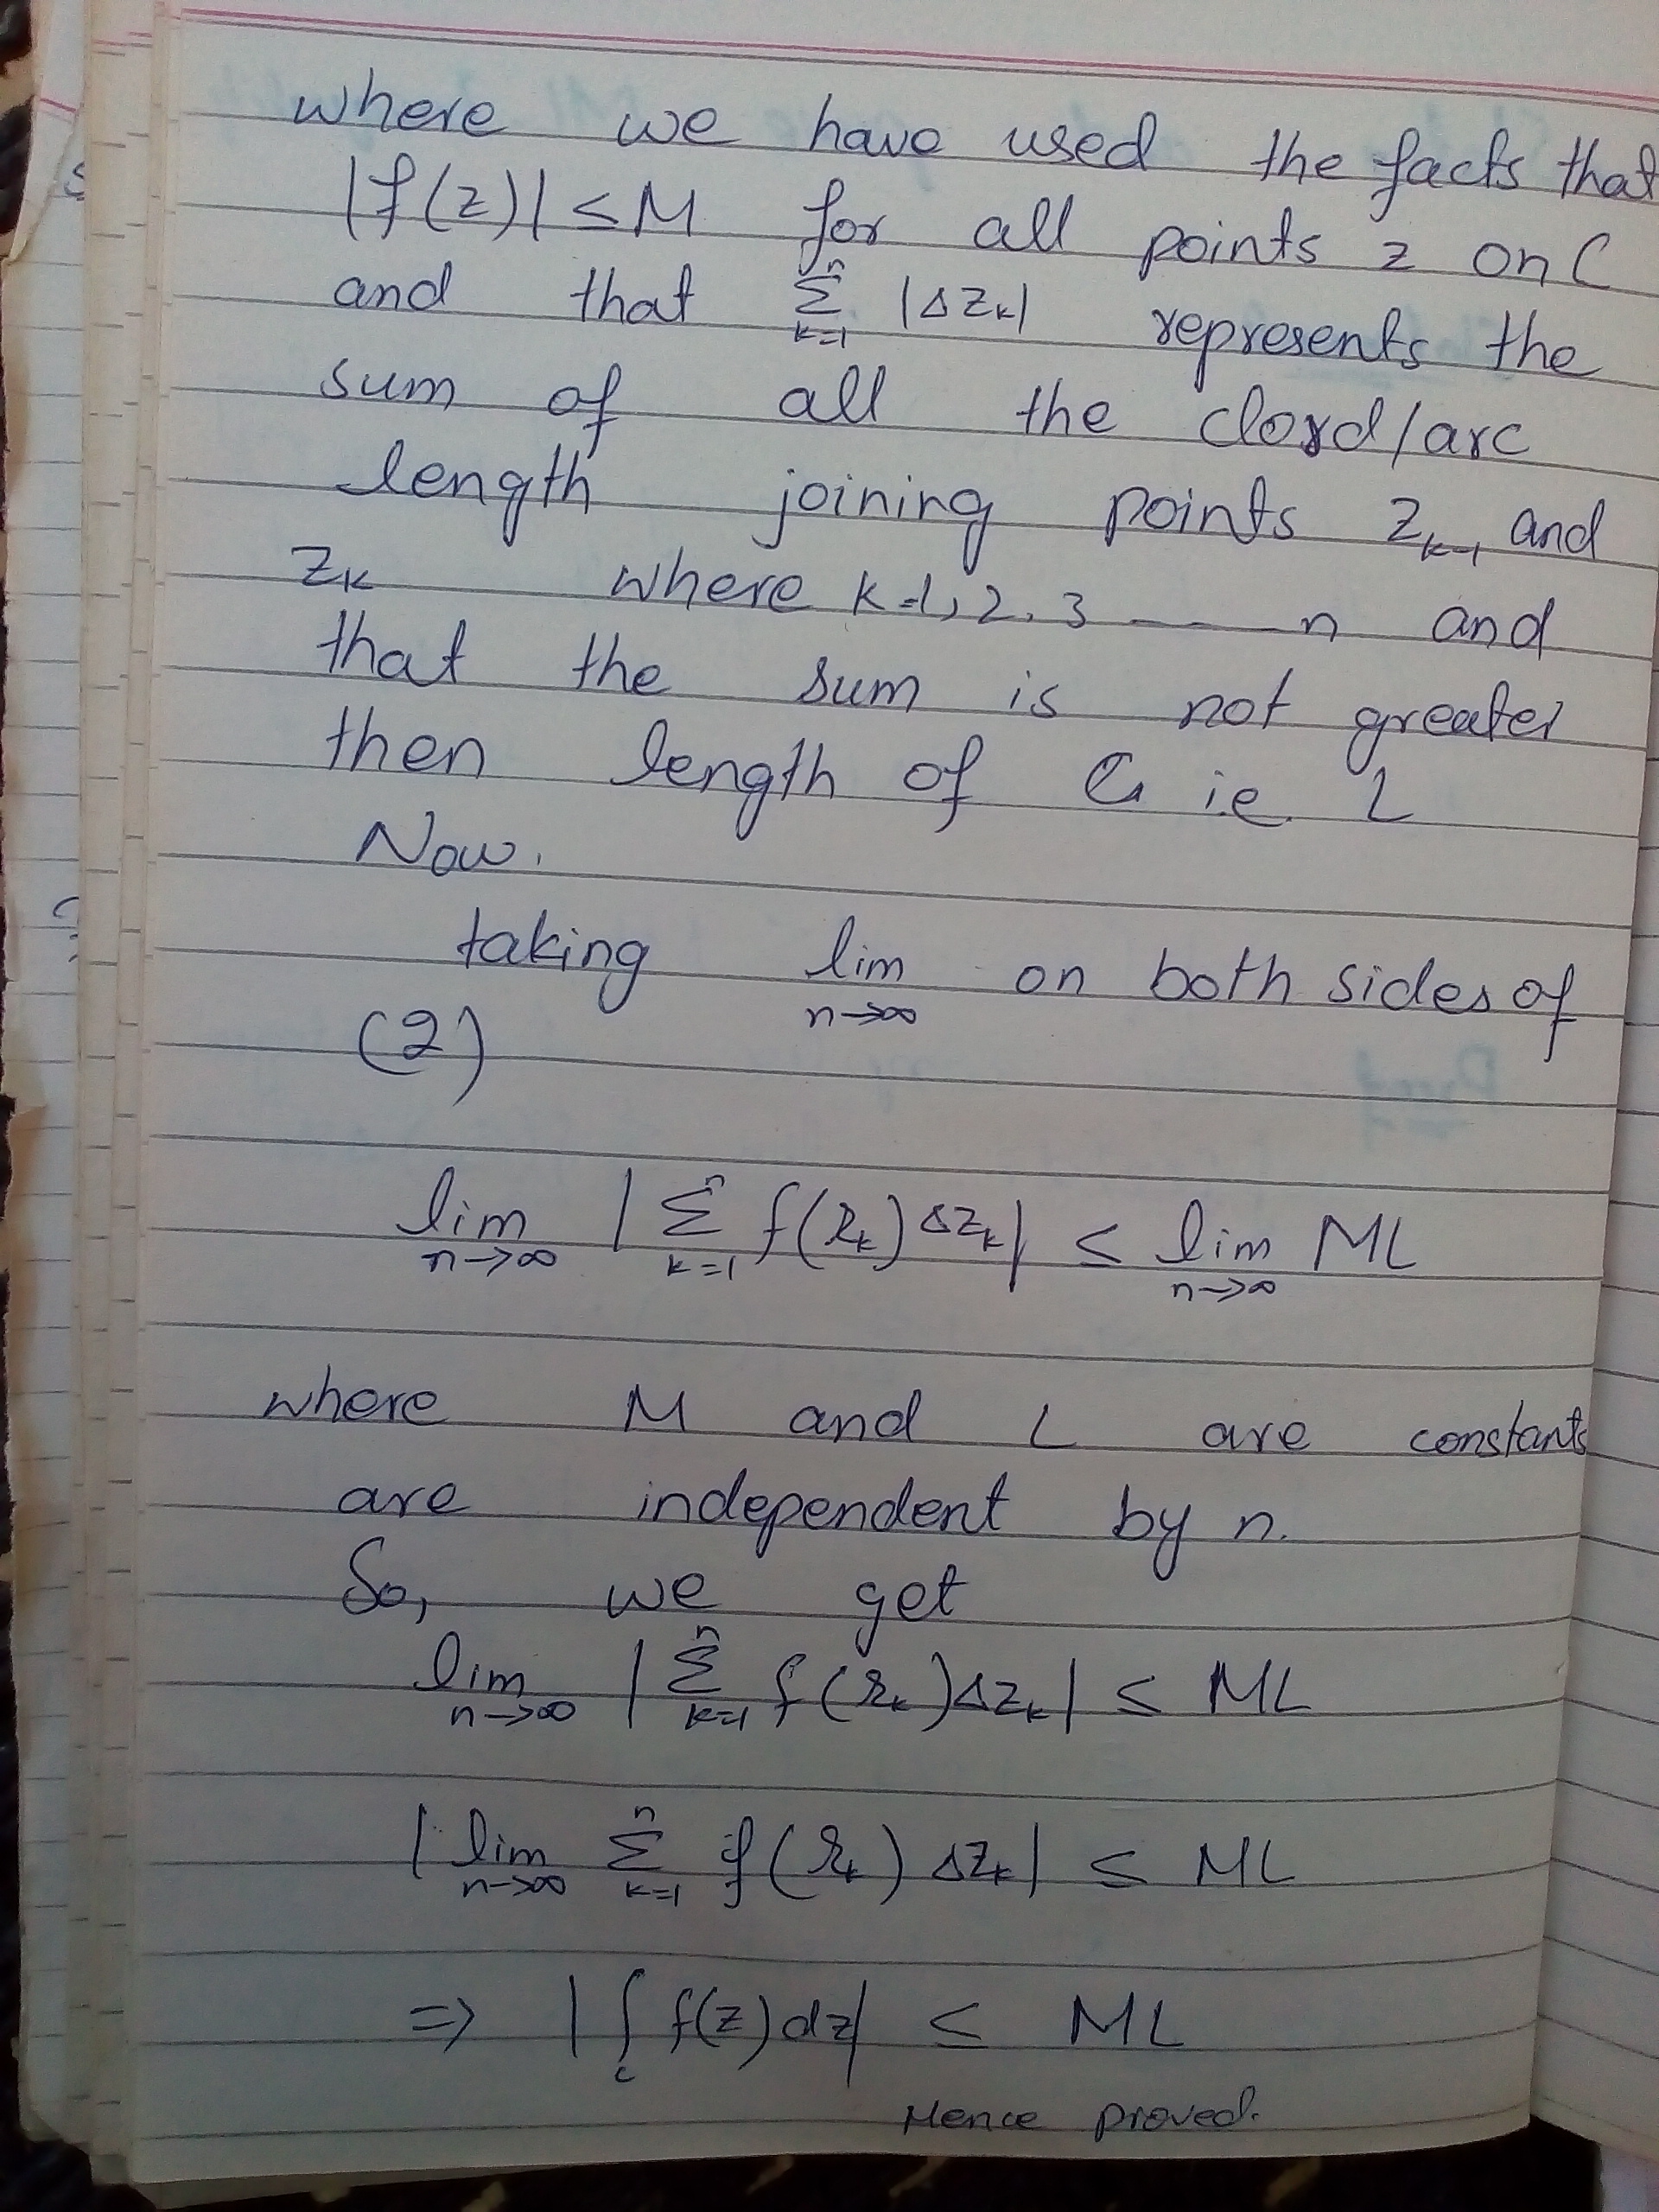 where we have used the facts that
|f(z)| ≤ M for all points z on C
and that \sum_{k=1}^{n} |Δz_k| represents the
sum of all the clord/arc
length joining points z_{k-1} and
z_k where k=1, 2, 3 ---- n and
that the sum is not greater
then length of C i.e. L
Now.
taking lim_{n→∞} on both sides of
(2)
lim_{n→∞} |\sum_{k=1}^{n} f(ξ_k) Δz_k| ≤ lim_{n→∞} ML
where M and L are constants
are independent by n.
So, we get
lim_{n→∞} |\sum_{k=1}^{n} f(ξ_k) Δz_k| ≤ ML
|lim_{n→∞} \sum_{k=1}^{n} f(ξ_k) Δz_k| ≤ ML
⇒ |∫_c f(z) dz| ≤ ML
Hence proved.